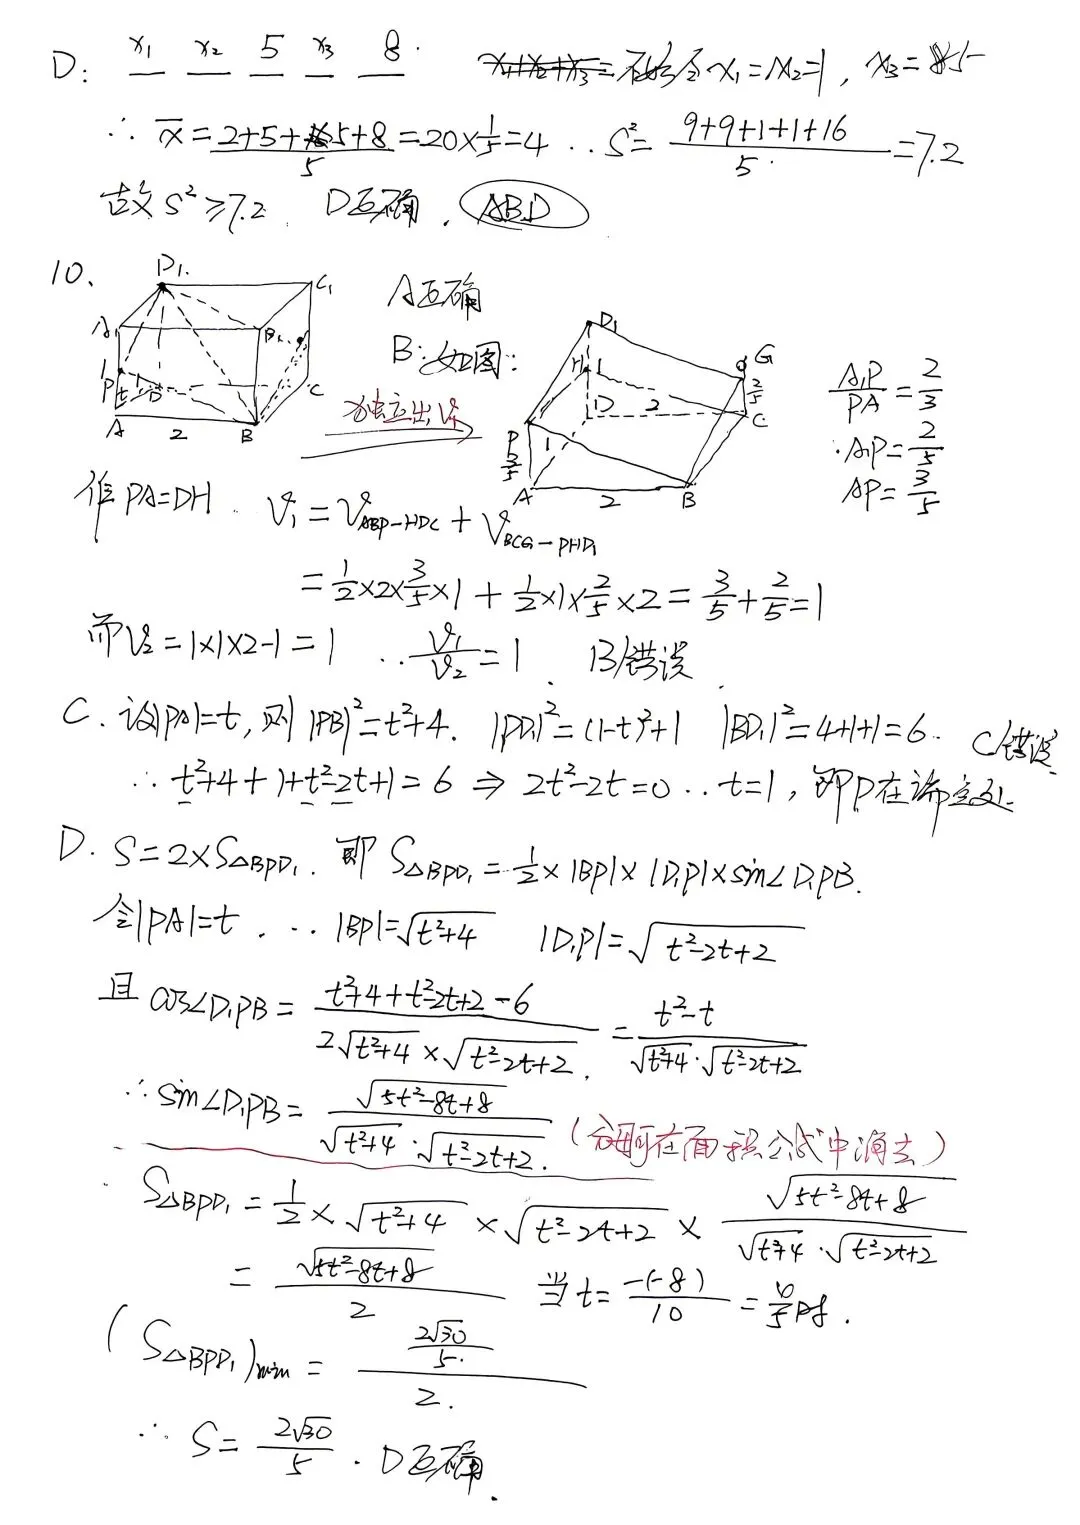 D: x₁ x₂ 5 x₃ 8. 不妨令x₁=x₂=1, x₃=5
∴ x̄=(2+5+5+8)/5=20×1/5=4 ∴S²=(9+9+1+1+16)/5=7.2
故S²≥7.2. D正确. ABD
10、
D₁ C₁ A₁ B₁ P t 1 D C A 2 B
A正确
B: 如图:
独立出V₁
D₁ G H 1 2/5 D 2 C P 3/5 1 A 2 B
A₁P/PA=2/3
∴A₁P=2/5
AP=3/5
作PA=DH. V₁=V_{ABP-HDC}+V_{BCG-PHD₁}
=1/2×2×3/5×1+1/2×1×2/5×2=3/5+2/5=1
而V₂=1×1×2-1=1 ∴V₁/V₂=1. B错误.
C. 设|PA|=t, 则|PB|²=t²+4. |PD₁|²=(1-t)²+1 |BD₁|²=4+1+1=6. C错误
∴t²+4+1+t²-2t+1=6⇒2t²-2t=0 ∴t=1, 即P在端点处.
D. S=2×S△BPD₁. 即S△BPD₁=1/2×|BP|×|D₁P|×sin∠D₁PB.
令|PA|=t. ∴|BP|=√(t²+4) |D₁P|=√(t²-2t+2)
且cos∠D₁PB=(t²+4+t²-2t+2-6)/(2√(t²+4)×√(t²-2t+2))=(t²-t)/(√(t²+4)·√(t²-2t+2))
∴sin∠D₁PB=√(5t²-8t+8)/(√(t²+4)·√(t²-2t+2)). (分母可在面积公式中消去)
∴S△BPD₁=1/2×√(t²+4)×√(t²-2t+2)×√(5t²-8t+8)/(√(t²+4)·√(t²-2t+2))
=√(5t²-8t+8)/2 当t=-(-8)/10=4/5时.
(S△BPD₁)min=(2√30/5)/2.
∴S=2√30/5. D正确.